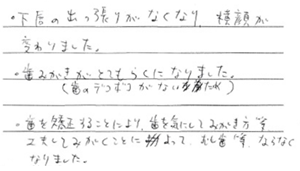 ・下唇の出っ張りがなくなり、横顔が
変わりました。
・歯みがきがとてもらくになりました。
(歯のデコボコがないため)
・歯を矯正することにより、歯を気にしてみがき方等
工夫してみがくことによって、むし歯等、ならなく
なりました。